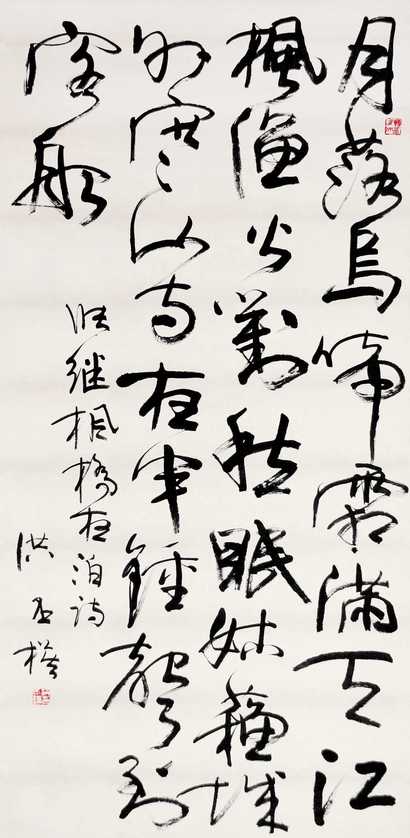 月落烏啼霜滿天江
楓漁火對愁眠姑蘇城
外寒山寺夜半鐘聲到
客船
张继枫橋夜泊诗
洪丕谟